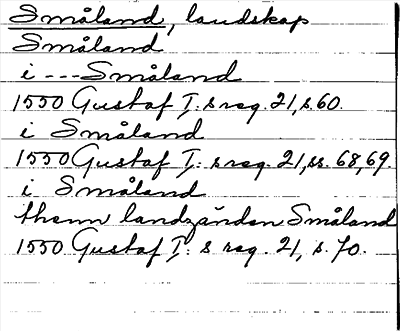 Småland, landskap
Småland
i --- Småland
1550 Gustaf I: s reg. 21, s. 60.
i Småland
1550 Gustaf I: s reg. 21, ss. 68, 69.
i Småland
thenn landzänden Småland
1550 Gustaf I: s reg. 21, s. 70.